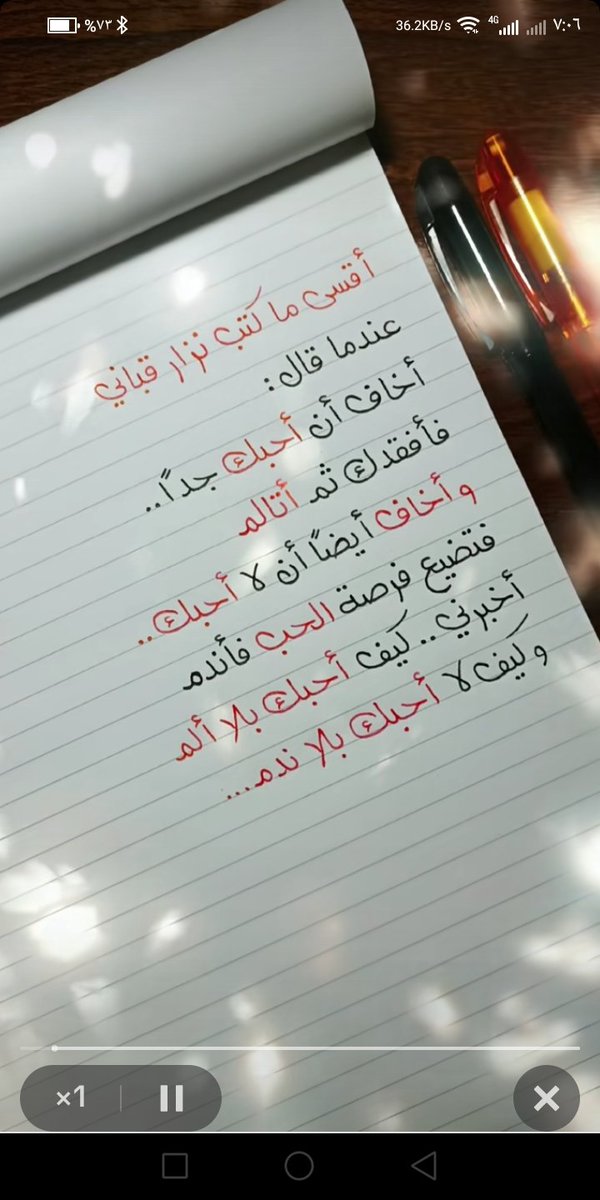 %٧٣ 36.2KB/s 4G ٧:٠٦
أقسى ما كتب نزار قباني
عندما قال :
أخاف أن أحبك جداً..
فأفقدك ثم أتالم
وأخاف أيضاً أن لا أحبك..
فتضيع فرصة الحب فأندم
أخبرني.. كيف أحبك بلا ألم
وكيف لا أحبك بلا ندم...
×1